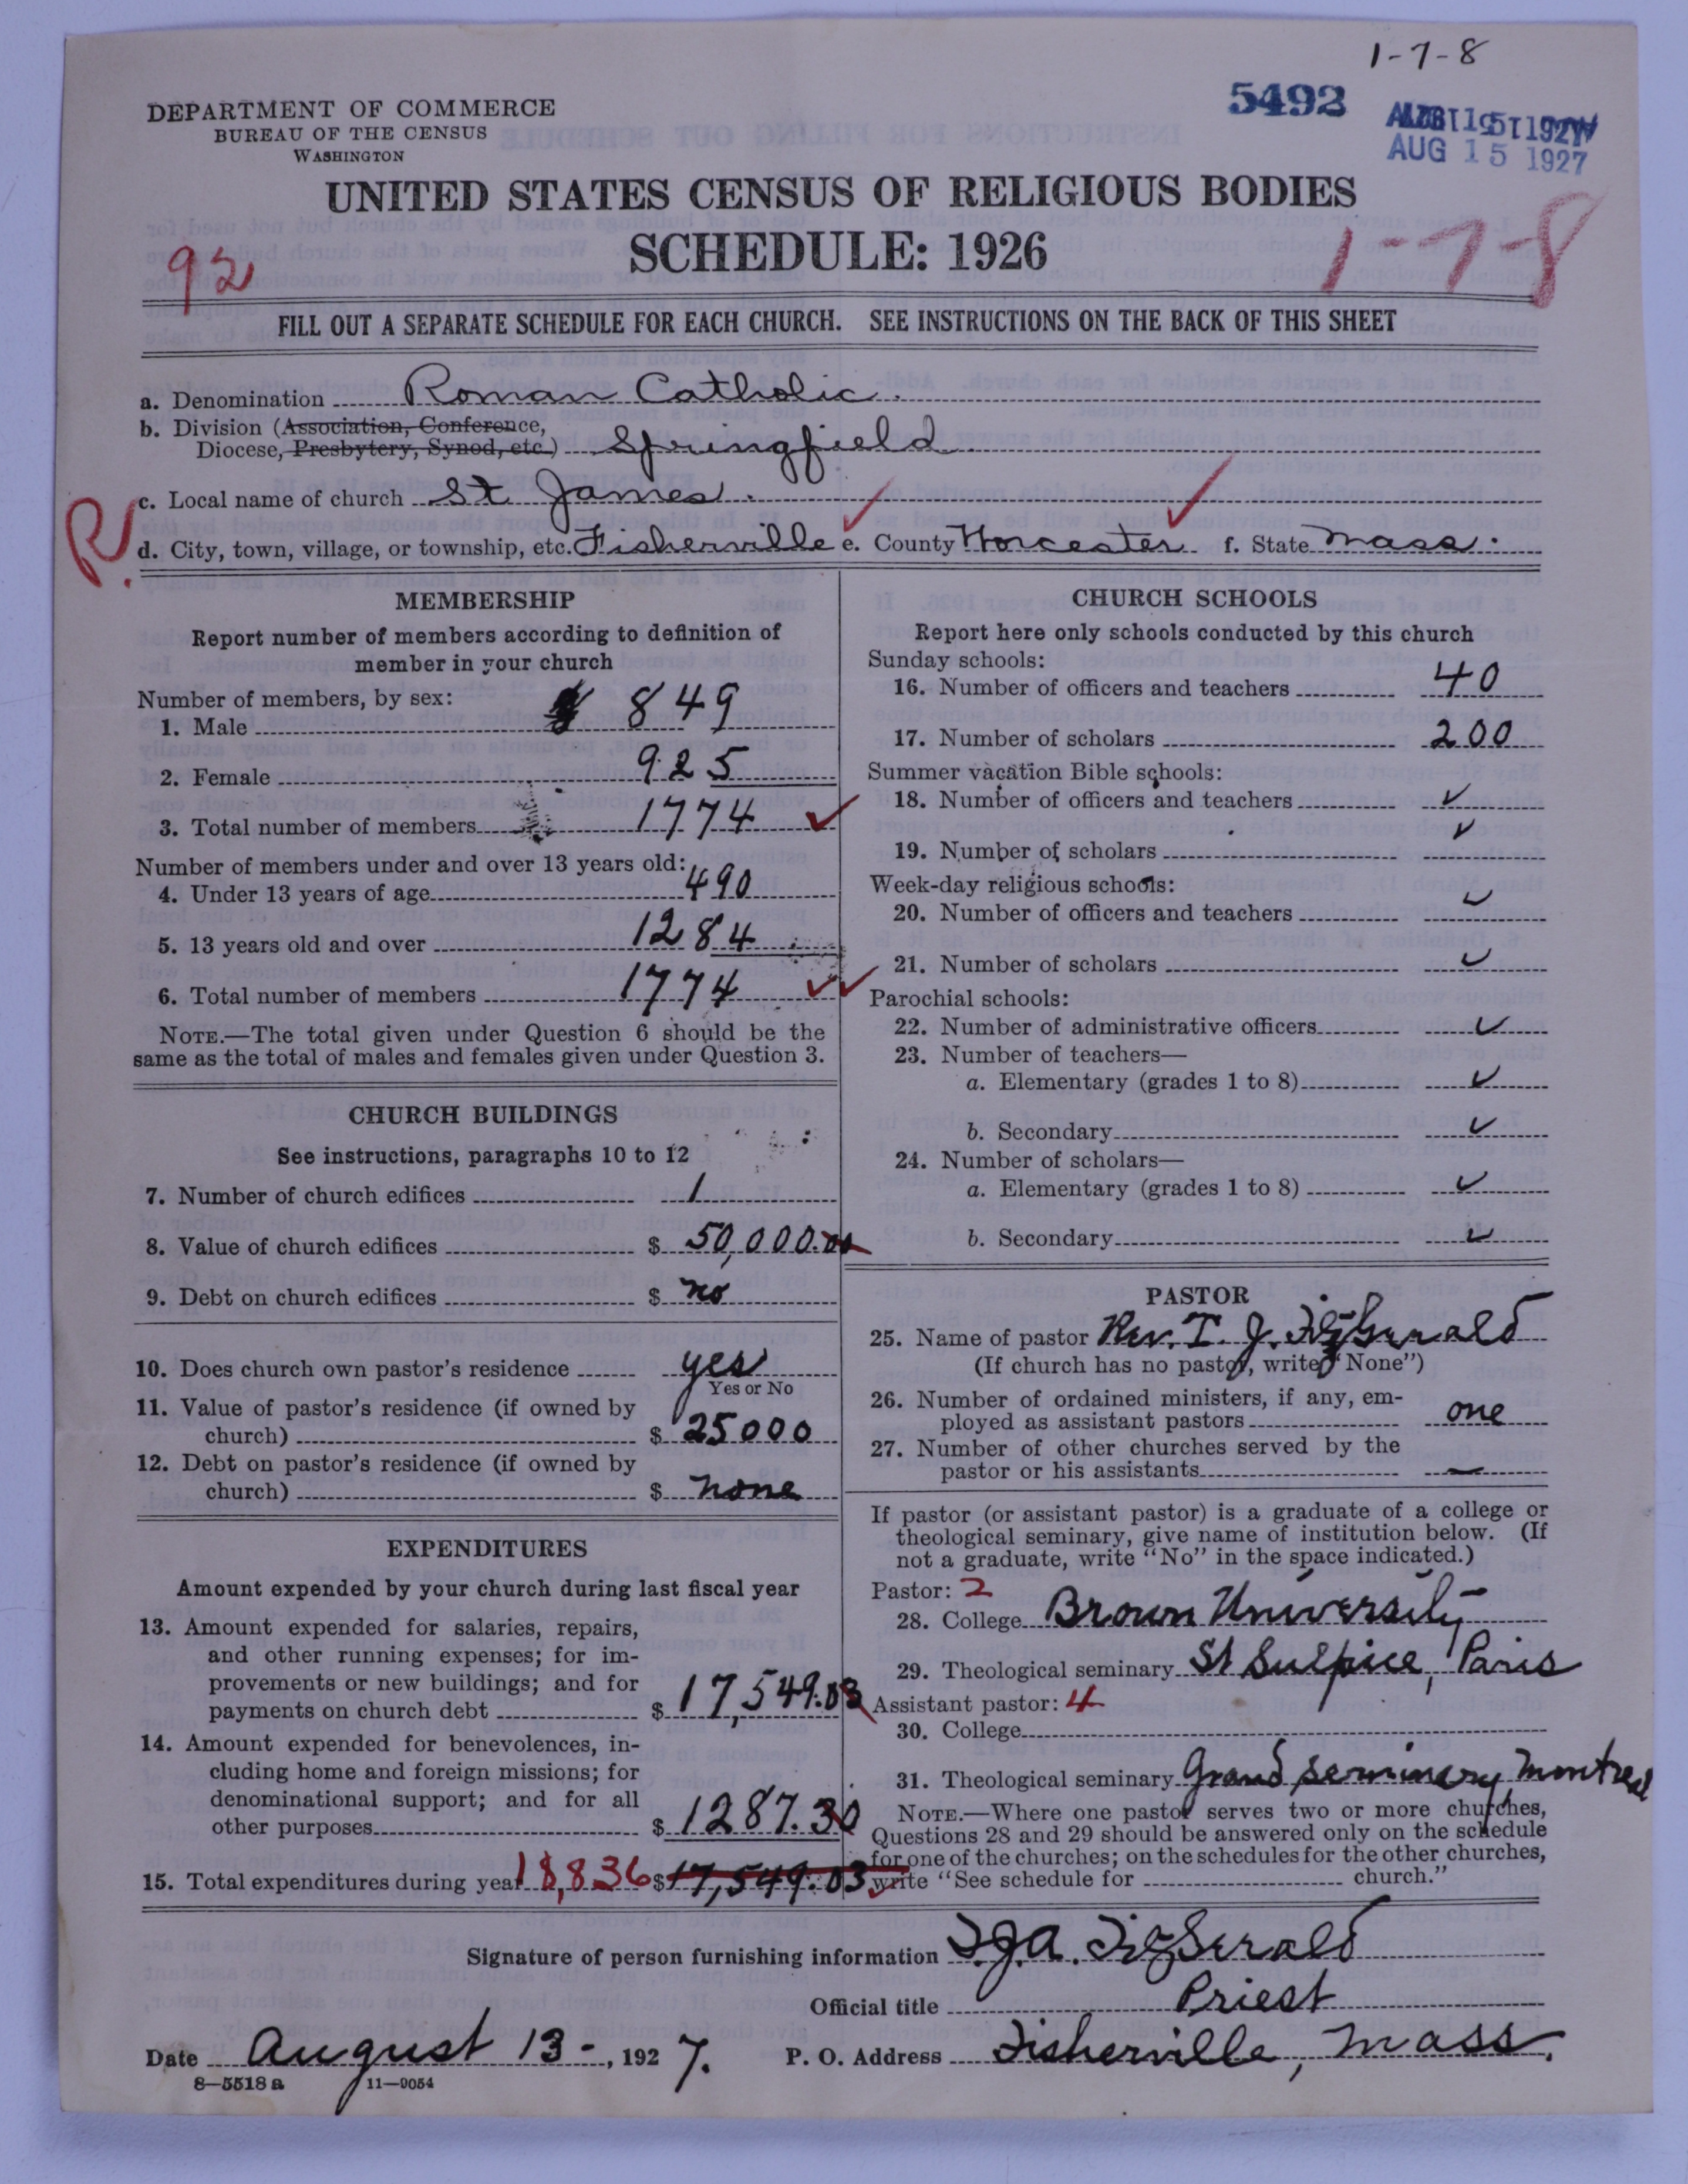 1-7-8
5492
AUG 15 1927
DEPARTMENT OF COMMERCE
BUREAU OF THE CENSUS
WASHINGTON
UNITED STATES CENSUS OF RELIGIOUS BODIES
SCHEDULE: 1926
92
1-7-8
FILL OUT A SEPARATE SCHEDULE FOR EACH CHURCH. SEE INSTRUCTIONS ON THE BACK OF THIS SHEET
a. Denomination Roman Catholic.
b. Division (Association, Conference,
Diocese, Presbytery, Synod, etc.) Springfield.
c. Local name of church St James.
R.
d. City, town, village, or township, etc. Fisherville e. County Worcester f. State Mass.
MEMBERSHIP
Report number of members according to definition of
member in your church
Number of members, by sex:
1. Male 849
2. Female 925
3. Total number of members 1774
Number of members under and over 13 years old:
4. Under 13 years of age 490
5. 13 years old and over 1284
6. Total number of members 1774
NOTE.—The total given under Question 6 should be the
same as the total of males and females given under Question 3.
CHURCH BUILDINGS
See instructions, paragraphs 10 to 12
7. Number of church edifices 1
8. Value of church edifices $ 50,000.00
9. Debt on church edifices $ no
10. Does church own pastor's residence yes
Yes or No
11. Value of pastor's residence (if owned by
church) $ 25000
12. Debt on pastor's residence (if owned by
church) $ none
EXPENDITURES
Amount expended by your church during last fiscal year
13. Amount expended for salaries, repairs,
and other running expenses; for im-
provements or new buildings; and for
payments on church debt $ 17,549.03
14. Amount expended for benevolences, in-
cluding home and foreign missions; for
denominational support; and for all
other purposes $ 1287.30
15. Total expenditures during year 18,836 $ 17,549.03
CHURCH SCHOOLS
Report here only schools conducted by this church
Sunday schools:
16. Number of officers and teachers 40
17. Number of scholars 200
Summer vacation Bible schools:
18. Number of officers and teachers ✓
19. Number of scholars ✓
Week-day religious schools:
20. Number of officers and teachers ✓
21. Number of scholars ✓
Parochial schools:
22. Number of administrative officers ✓
23. Number of teachers—
a. Elementary (grades 1 to 8) ✓
b. Secondary ✓
24. Number of scholars—
a. Elementary (grades 1 to 8) ✓
b. Secondary ✓
PASTOR
25. Name of pastor Rev. T. J. FitzGerald
(If church has no pastor, write "None")
26. Number of ordained ministers, if any, em-
ployed as assistant pastors one
27. Number of other churches served by the
pastor or his assistants —
If pastor (or assistant pastor) is a graduate of a college or
theological seminary, give name of institution below. (If
not a graduate, write "No" in the space indicated.)
Pastor: 2
28. College Brown University
29. Theological seminary St Sulpice, Paris
Assistant pastor: 4
30. College
31. Theological seminary Grand Seminery, Montreal
NOTE.—Where one pastor serves two or more churches,
Questions 28 and 29 should be answered only on the schedule
for one of the churches; on the schedules for the other churches,
write "See schedule for church."
Signature of person furnishing information FitzGerald
Official title Priest
Date August 13-, 1927. P. O. Address Fisherville, Mass.
8—5518 a 11—9054